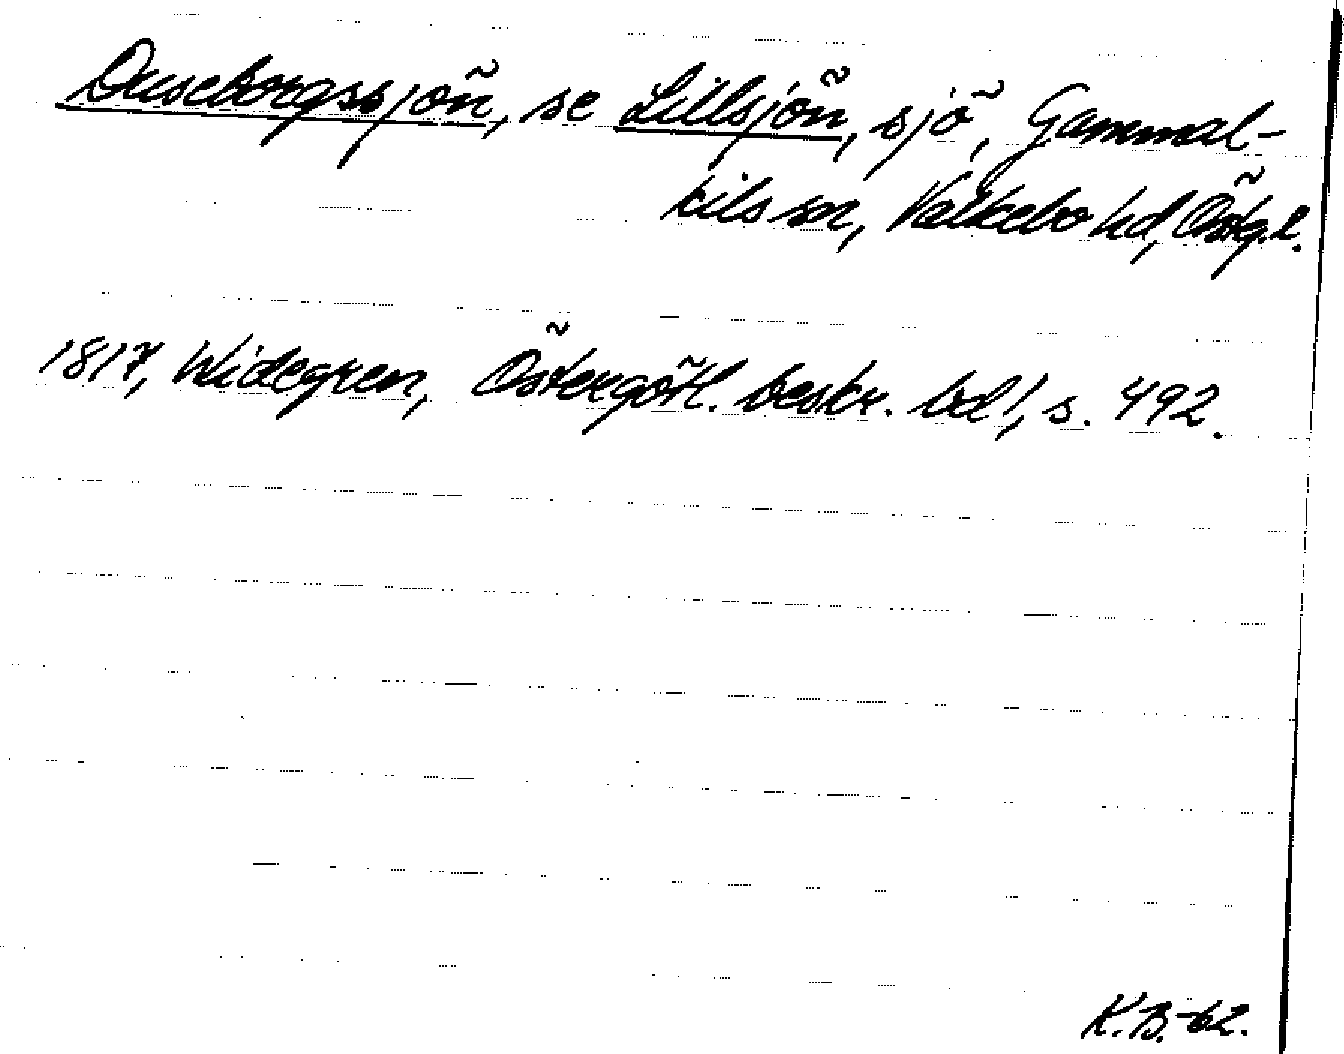 Duseborgssjön, se Lillsjön, sjö, Gammal-
kils sn, Valkebo hd, Östg.l.
1817, Widegren, Östergötl. beskr. bd 1, s. 492.
K.B.-62.